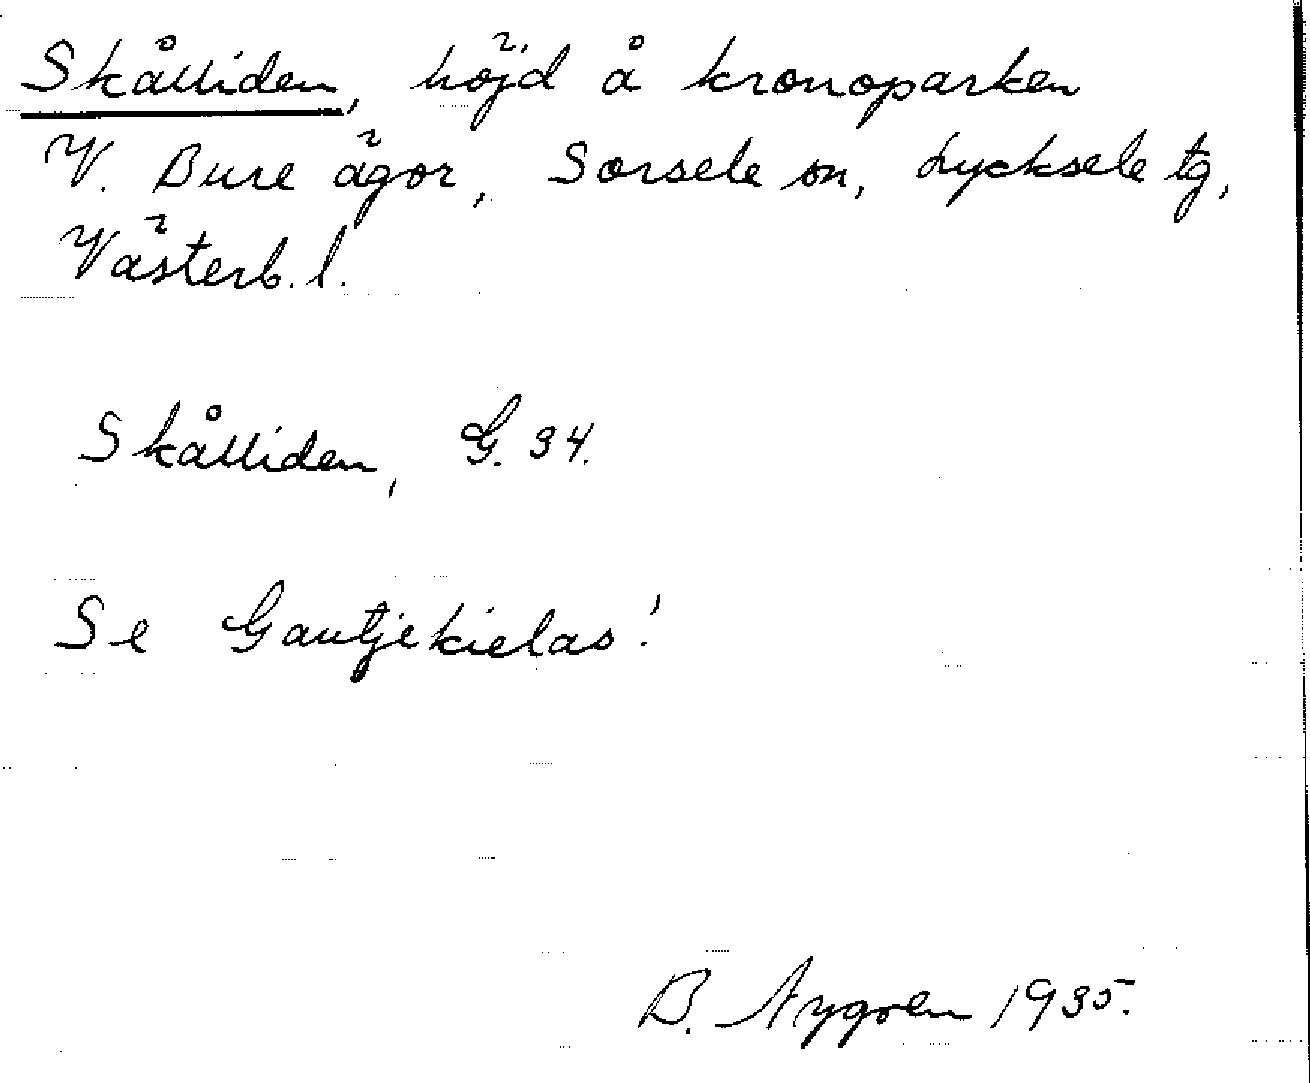 Skålliden, höjd å kronoparken
V. Bure ägor, Sorsele sn, Lycksele tg,
Västerb. l.
Skålliden, G. 34.
Se Gautjekielas!
B. Nygren 1935.